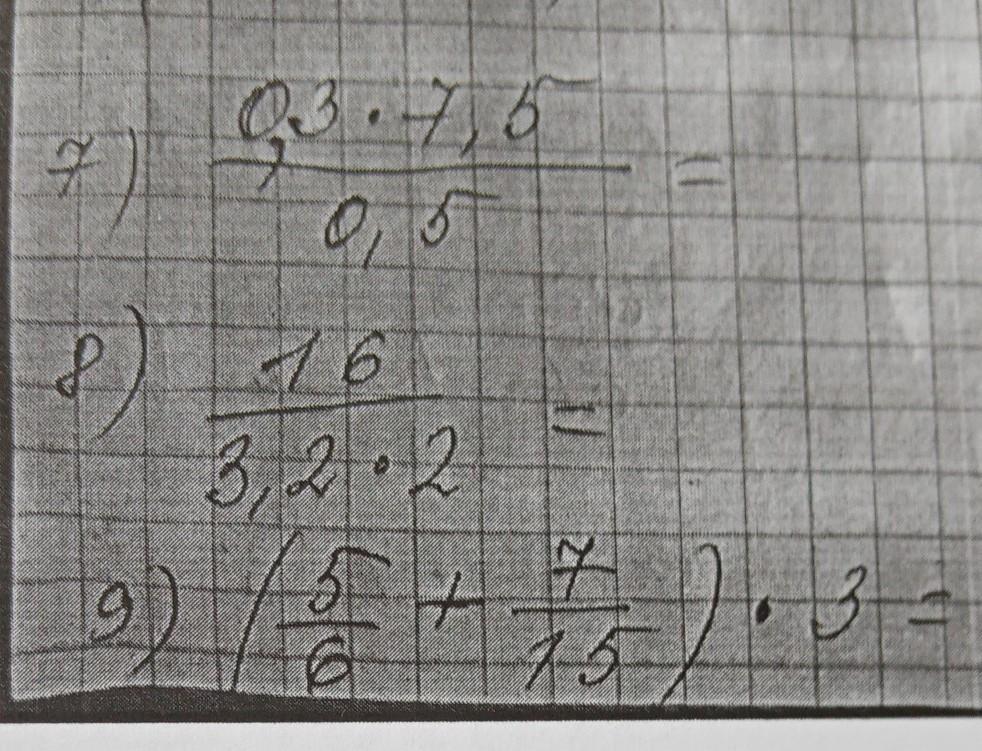 7) 0,3 · 7,5 / 0,5 =
8) 16 / 3,2 · 2 =
9) (5/6 + 7/15) · 3 =